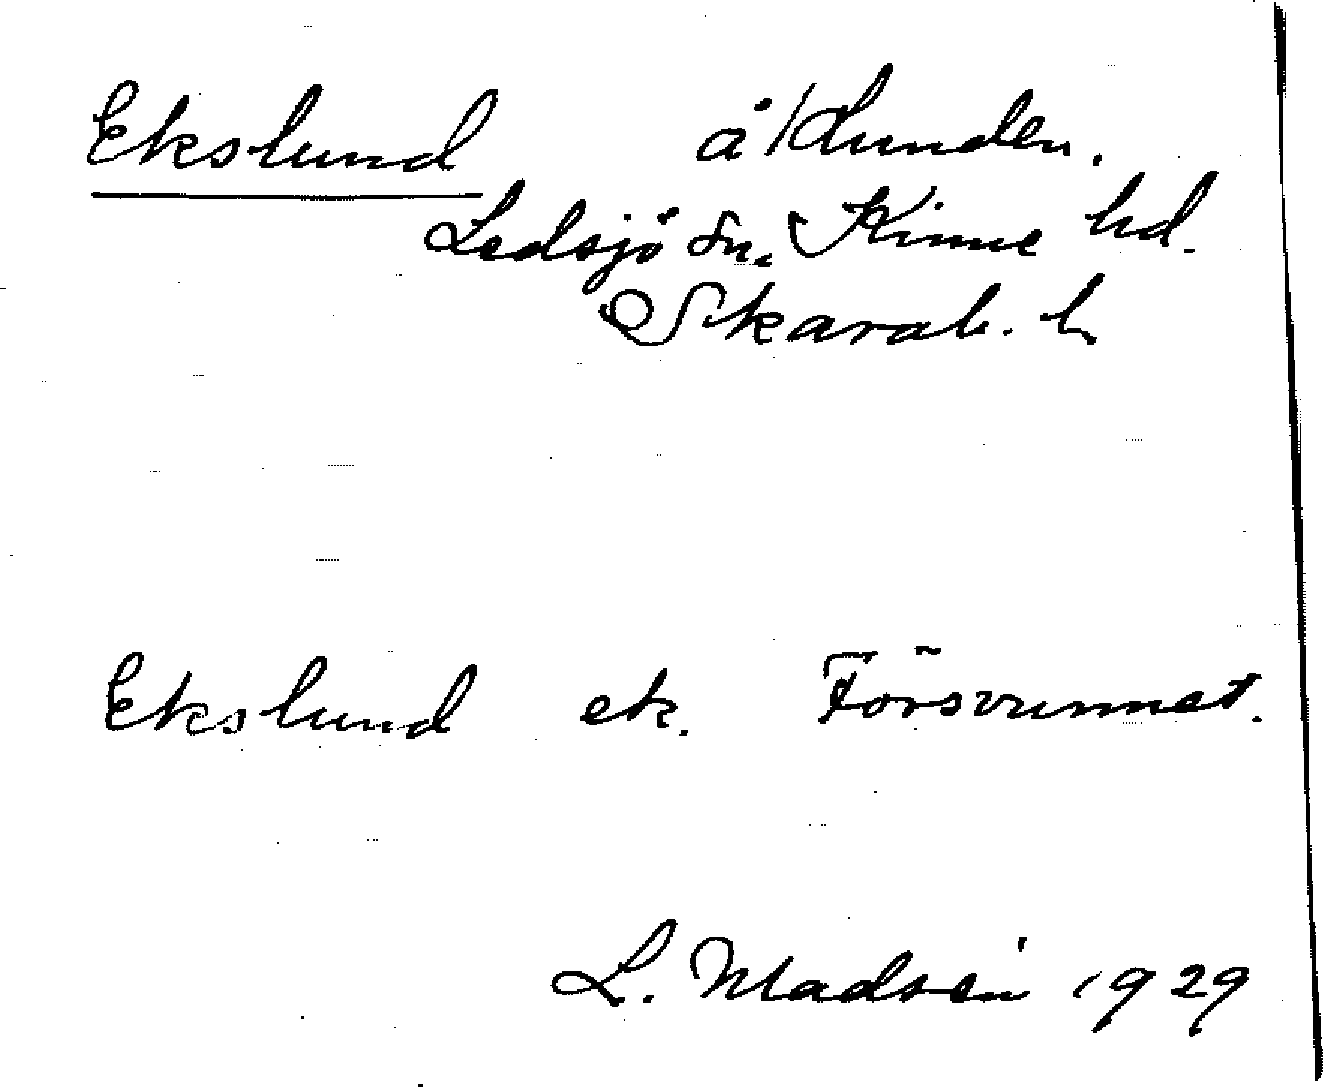 Ekslund å Hunden.
Ledsjö sn. Kinne hd.
Skarab. l.
Ekslund ek. Försvunnet.
L. Madsén 1929